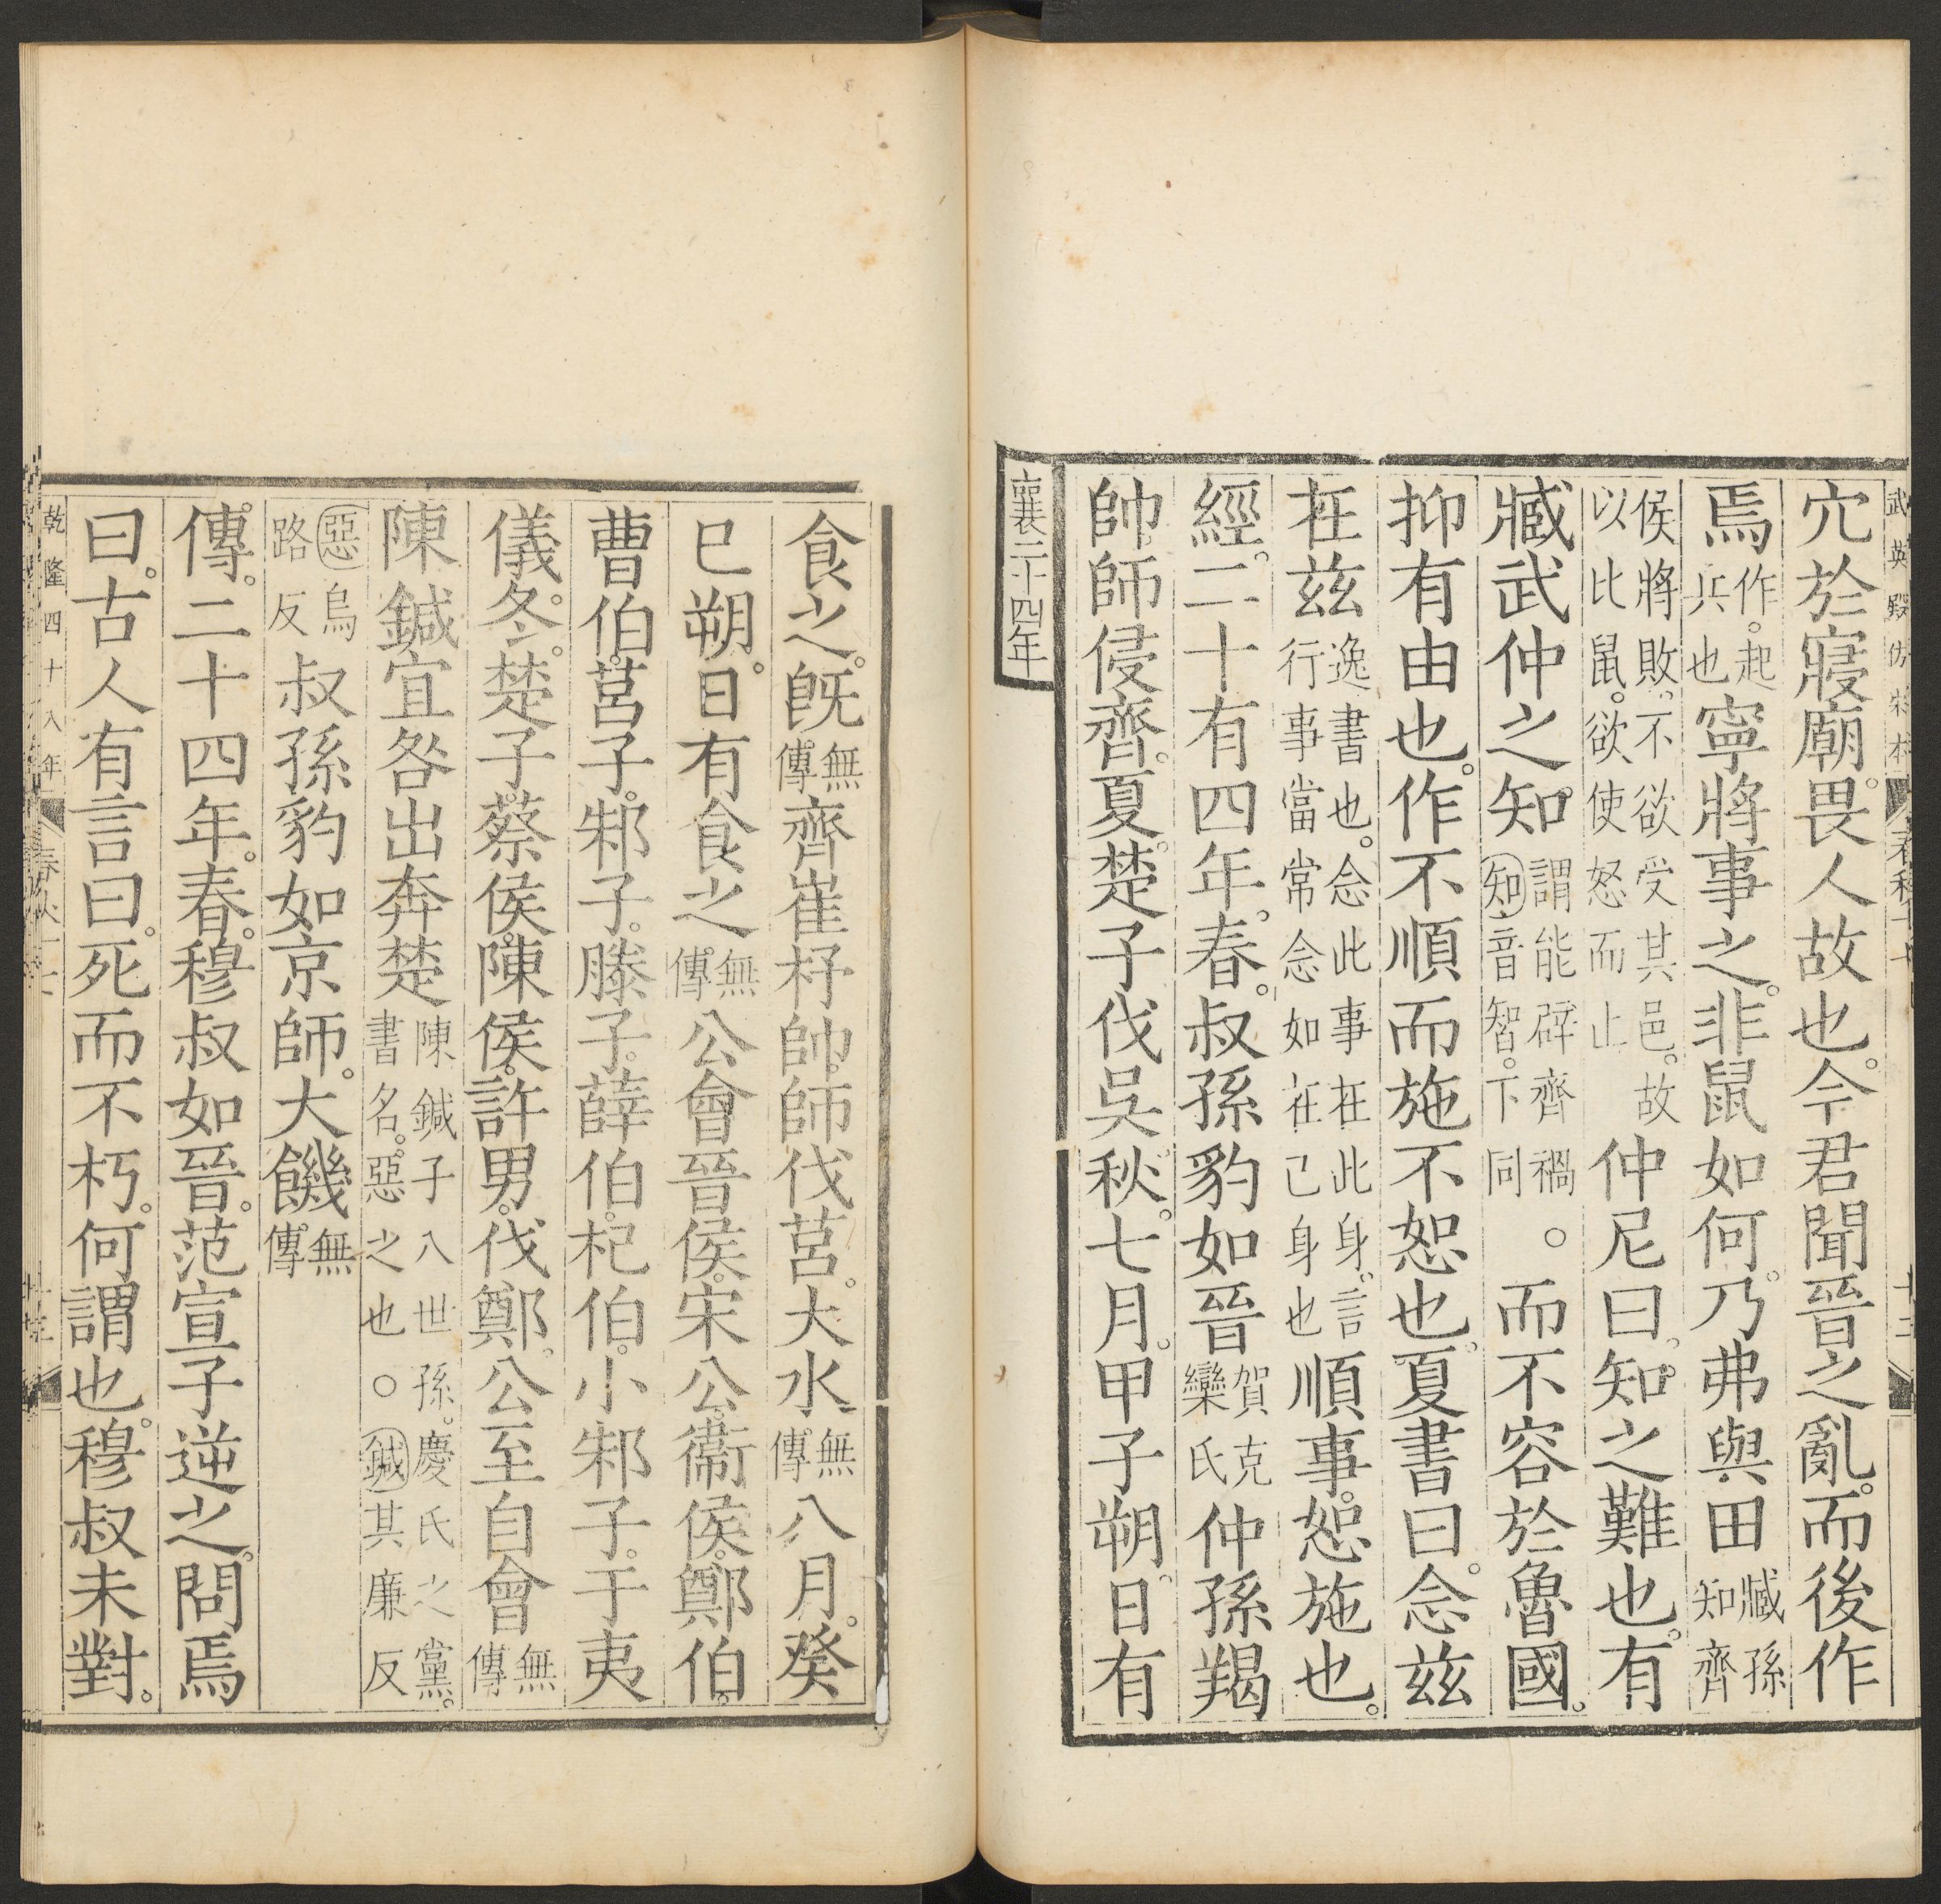 武英殿仿宋本
穴於寢廟。畏人故也。今君聞晉之亂。而後作
焉作。起兵也寧將事之。非鼠如何。乃弗與田臧孫知齊
侯將敗。不欲受其邑。故以比鼠。欲使怒而止仲尼曰。知之難也。有
臧武仲之知。謂能辟齊禍。○知音智。下同而不容於魯國。
抑有由也。作不順而施不恕也。夏書曰。念茲
在茲逸書也。念此事在此身。言行事當常念如在己身也順事。恕施也。
經。二十有四年。春。叔孫豹如晉賀克欒氏仲孫羯
帥師侵齊。夏。楚子伐吳。秋。七月。甲子朔。日有
襄二十四年
食之。既無傳。齊崔杼帥師伐莒。大水無傳。八月。癸
巳朔。日有食之無傳。公會晉侯。宋公。衞侯。鄭伯。
曹伯。莒子。邾子。滕子。薛伯。杞伯。小邾子。于夷
儀。冬。楚子。蔡侯。陳侯。許男。伐鄭。公至自會無傳
陳鍼宜咎出奔楚陳鍼子八世孫。慶氏之黨。書名。惡之也。○鍼其廉反
惡烏路反叔孫豹如京師。大饑無傳。
傳。二十四年。春。穆叔如晉。范宣子逆之。問焉
曰。古人有言曰。死而不朽。何謂也。穆叔未對。
乾隆四十八年